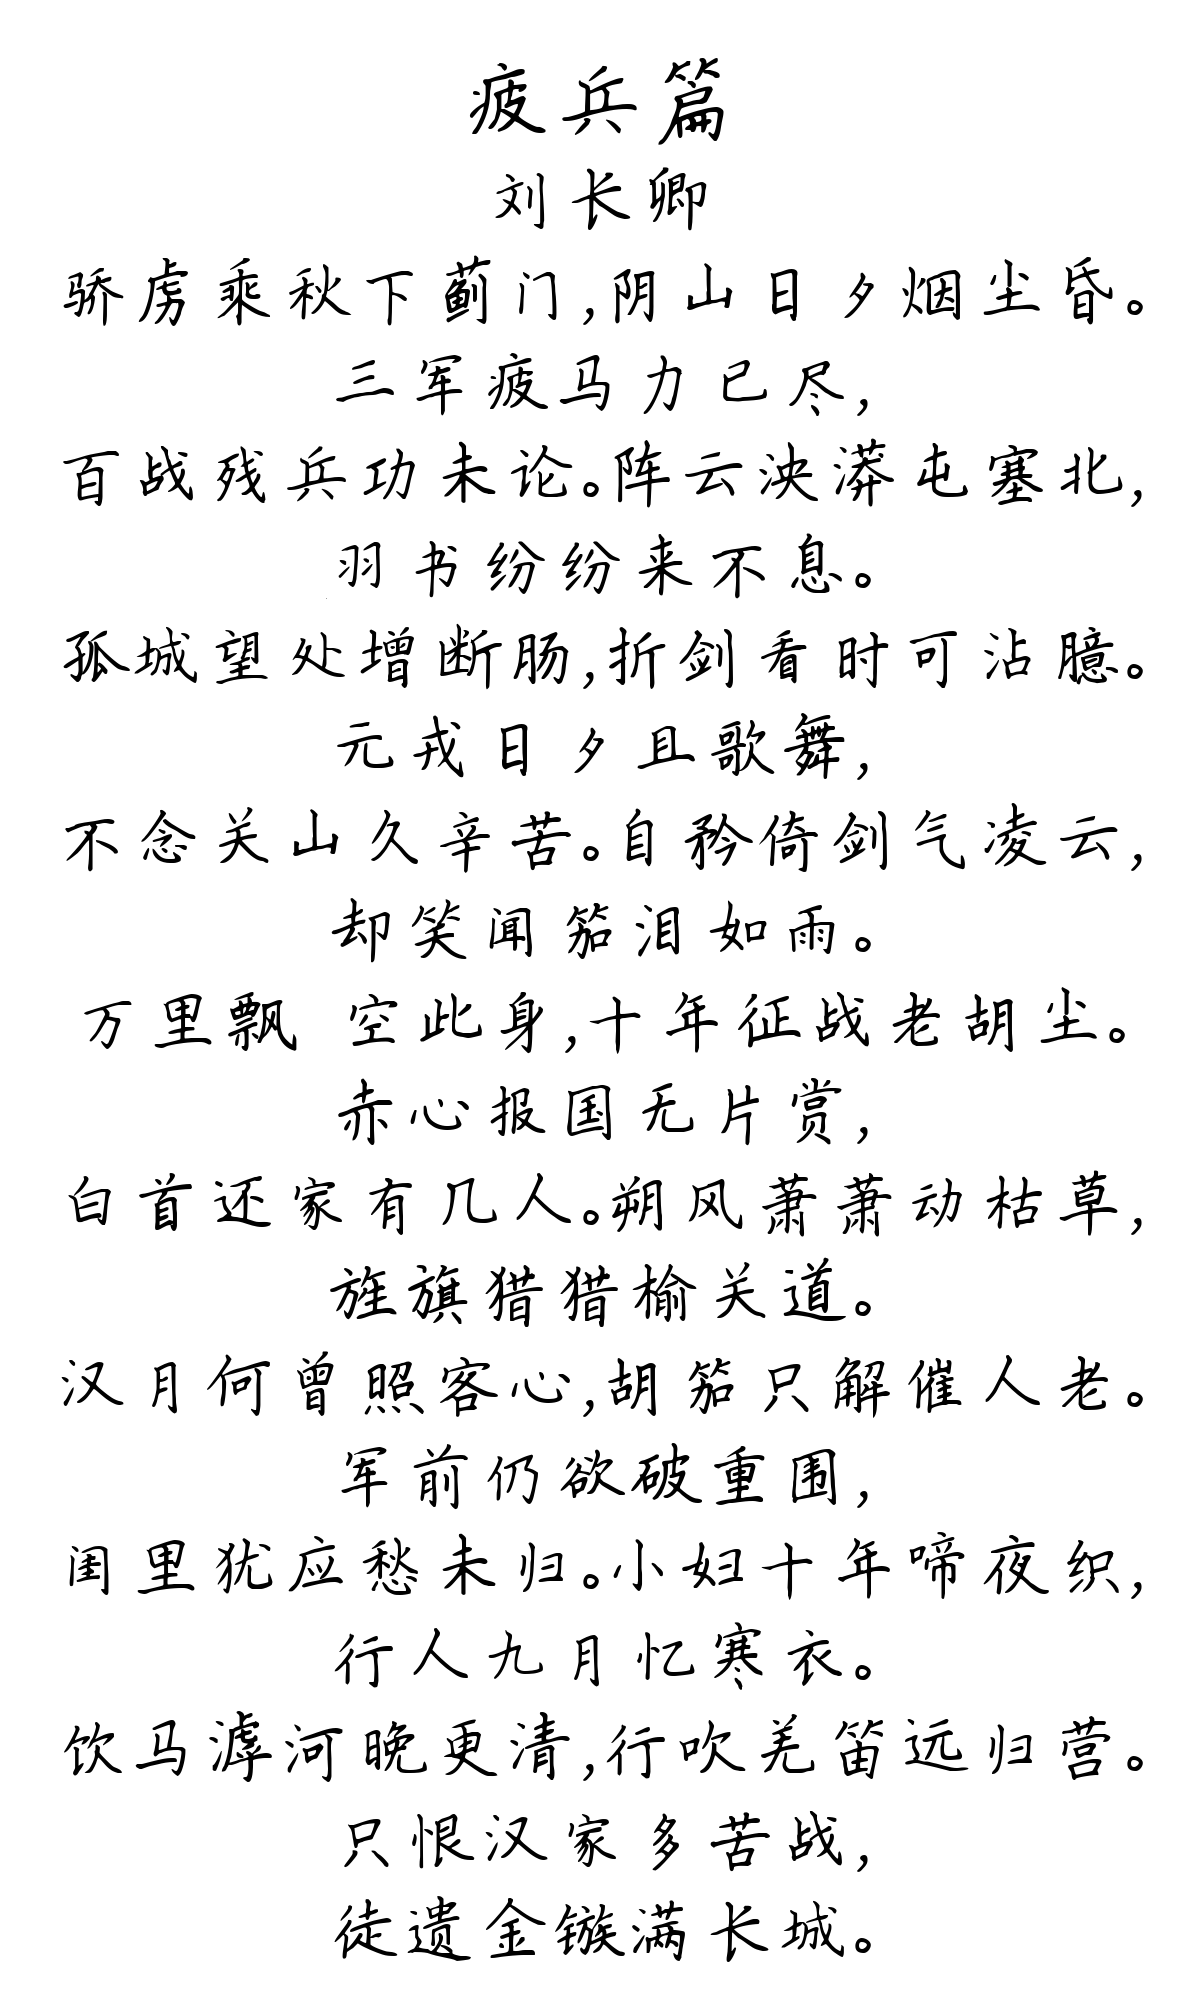 疲兵篇
刘长卿
骄虏乘秋下蓟门,阴山日夕烟尘昏。
三军疲马力已尽,
百战残兵功未论。阵云泱漭屯塞北,
羽书纷纷来不息。
孤城望处增断肠,折剑看时可沾臆。
元戎日夕且歌舞,
不念关山久辛苦。自矜倚剑气凌云,
却笑闻笳泪如雨。
万里飘 空此身,十年征战老胡尘。
赤心报国无片赏,
白首还家有几人。朔风萧萧动枯草,
旌旗猎猎榆关道。
汉月何曾照客心,胡笳只解催人老。
军前仍欲破重围,
闺里犹应愁未归。小妇十年啼夜织,
行人九月忆寒衣。
饮马滹河晚更清,行吹羌笛远归营。
只恨汉家多苦战,
徒遗金镞满长城。